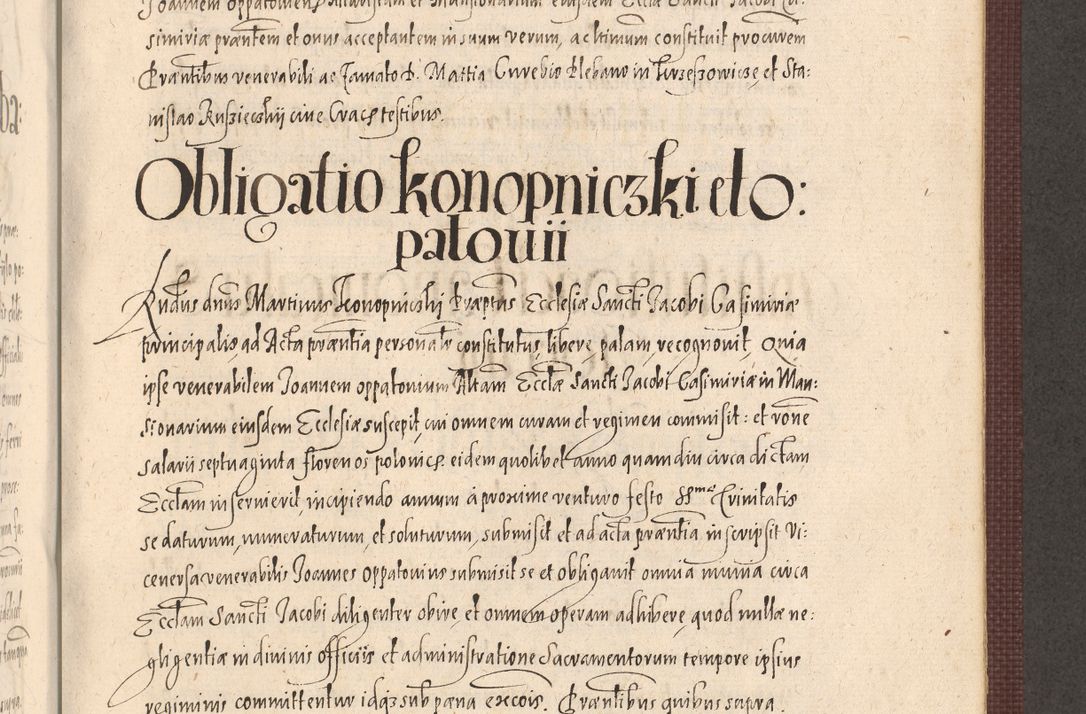 Joannem oppatovien Altaristam et Mansionarium eiusdem Eccliæ Sancti Jacobi Ca:
simiriæ præntem et onus acceptantem in suum verum, ac ltimum constituit procurem
Præntibus venerabili ac famato D. Mattia Curebio Plebano in et Sta:
nislao cive Crac testibus.
Obligatio konopniczki et o:
patouii
Rndus dnus Martinus Konopniczkij Præptus Ecclesiæ Sancti Jacobi Casimiriæ
principalis, ad Acta præntia personalr constitutus, libere, palam, recognovit, Quia
ipse venerabilem Joannem oppatovium Altam Ecclæ Sancti Jacobi Casimiriæ in Man:
sionarium eiusdem Ecclesiæ suscepit, cui omnem curam et regimen commisit: et rone
salarii septuaginta florenos polonic. eidem quolibet anno quamdiu circa dictam
Ecclam inservierit, incipiendo annum à proxime venturo festo SSmæ Trinitatis
se daturum, numeraturum, et soluturum, submisit et ad acta præntia inscripsit Vi:
ceversa venerabilis Joannes Oppatovius submisit se et obligavit omnia munia circa
Ecclam Sancti Jacobi diligenter obire, et omnem operam adhibere, quod nullæ ne:
gligentiæ in divinis officiis et administratione Sacramentorum tempore ipsius
regiminis committentur idq3 sub pæna excois. Præntibus quibus supra.